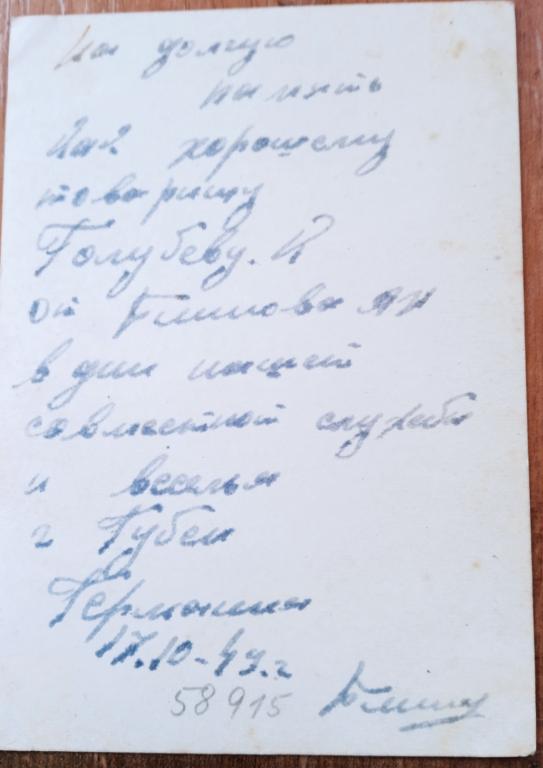 На долгую
память
хорошему
товарищу
Голубеву.
от Блинова
в дни нашей
совместной службы
и веселья
г Губен
Германия
17.10-49.г
58915